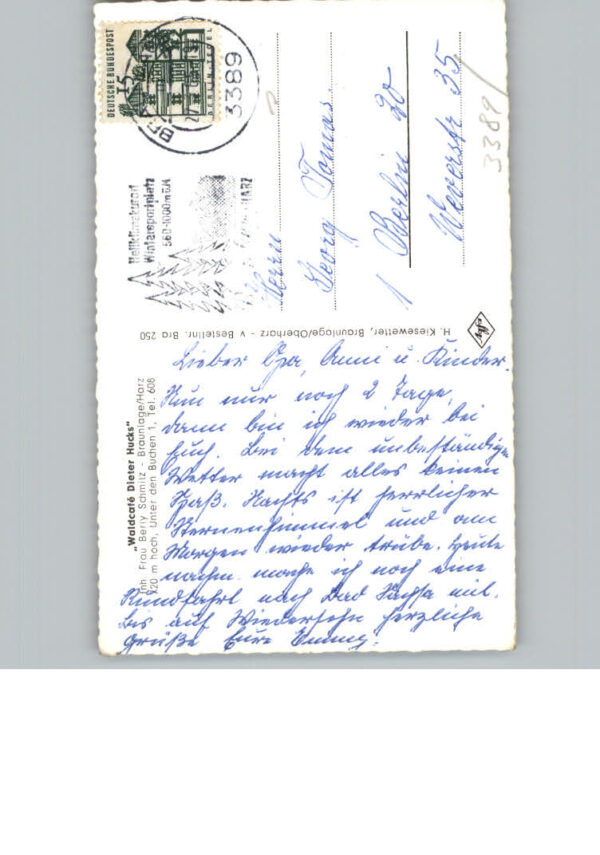 DEUTSCHE BUNDESPOST
15
BERLIN TEGEL
3389
Heilklimakurort
Wintersportplatz
560-1000m ü.M.
HARZ
3389
Herrn
Georg Tomas
1 Berlin 20
Weverstr 35
H. Kiesewetter, Braunlage/Oberharz - v Bestellnr. Bra 250
„Waldcafé Dieter Hucks"
Inh. Frau Berry Schmitz - Braunlage/Harz
620 m hoch, Unter den Buchen 1, Tel. 608
Lieber Opa, Anni u. Kinder.
Nun nur noch 2 Tage,
dann bin ich wieder bei
Euch. Bei dem unbeständigen
Wetter macht alles keinen
Spaß. Nachts ist herrlicher
Sternenhimmel und am
Morgen wieder trübe. Heute
nachm. mache ich noch eine
Rundfahrt nach Bad Sachsa mit.
Bis auf Wiedersehn herzliche
Grüße Eure Emmy.